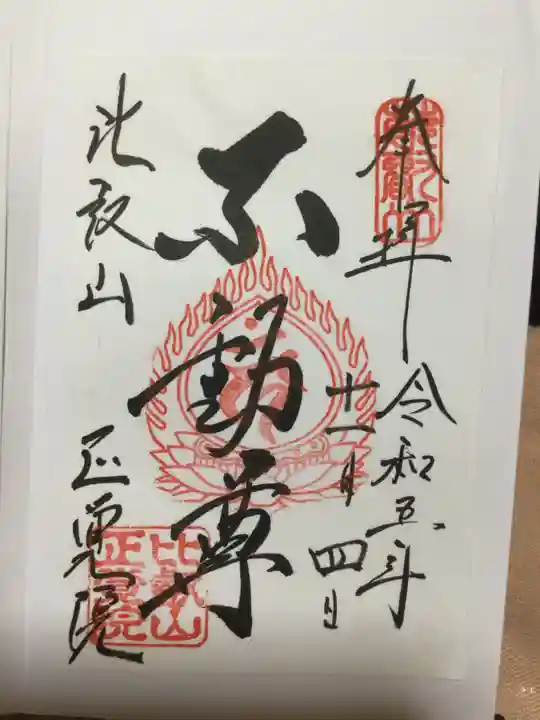 奉拝 令和五年
十一月四日
不動尊
比叡山 正覚院
比叡山
正覚院